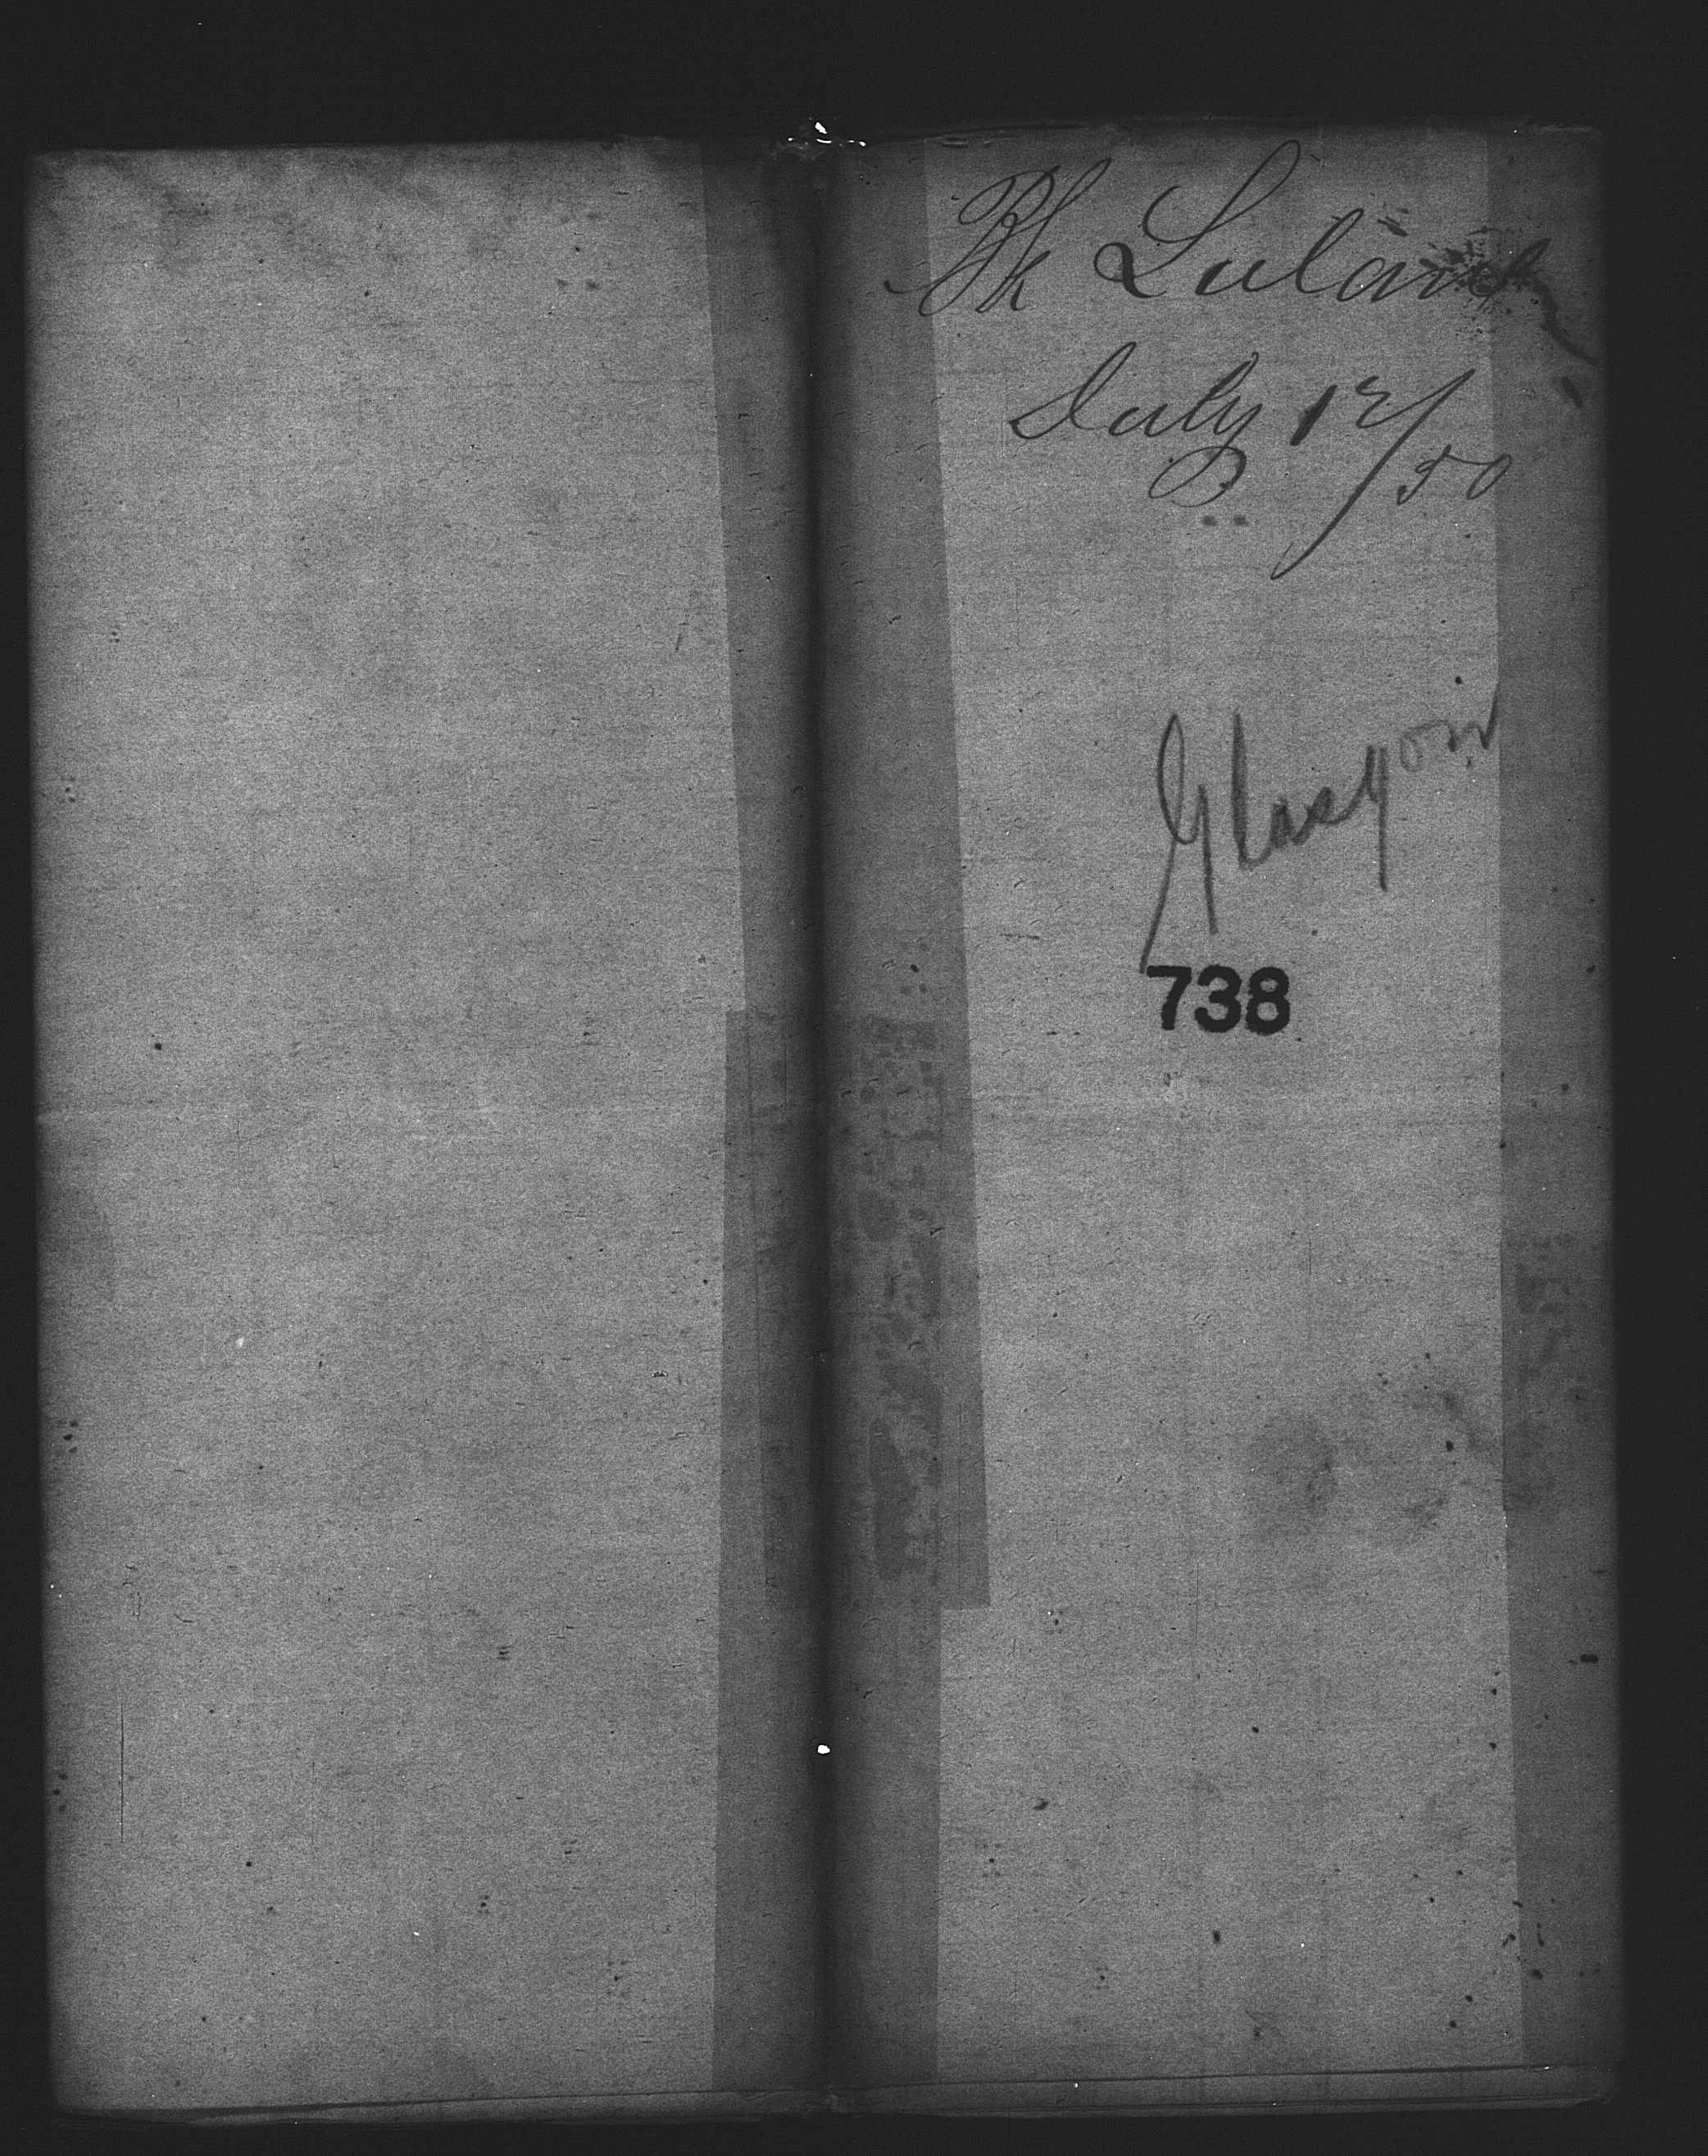 Bk Luland
July 12/50
Glasgow
738